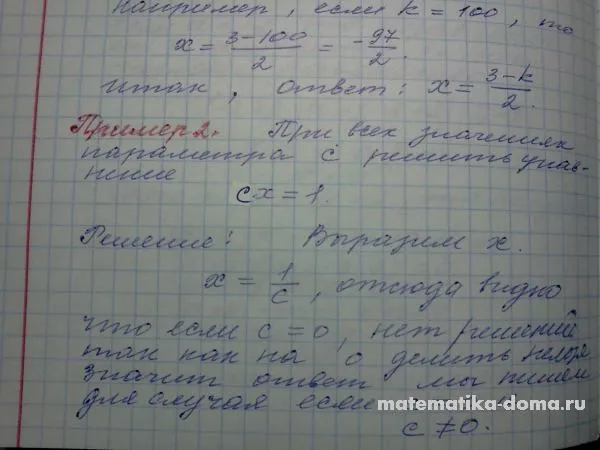 например, если k = 100, то
x = 3-100/2 = -97/2.
итак, ответ: x = 3-k/2.
Пример 2. При всех значениях
параметра с решить урав-
нение
cx = 1.
Решение: Выразим x.
x = 1/c, отсюда видно
что если c = 0, нет решений
так как на 0 делить нельзя
значит ответ мы пишем
для случая если
matematika-doma.ru
c ≠ 0.